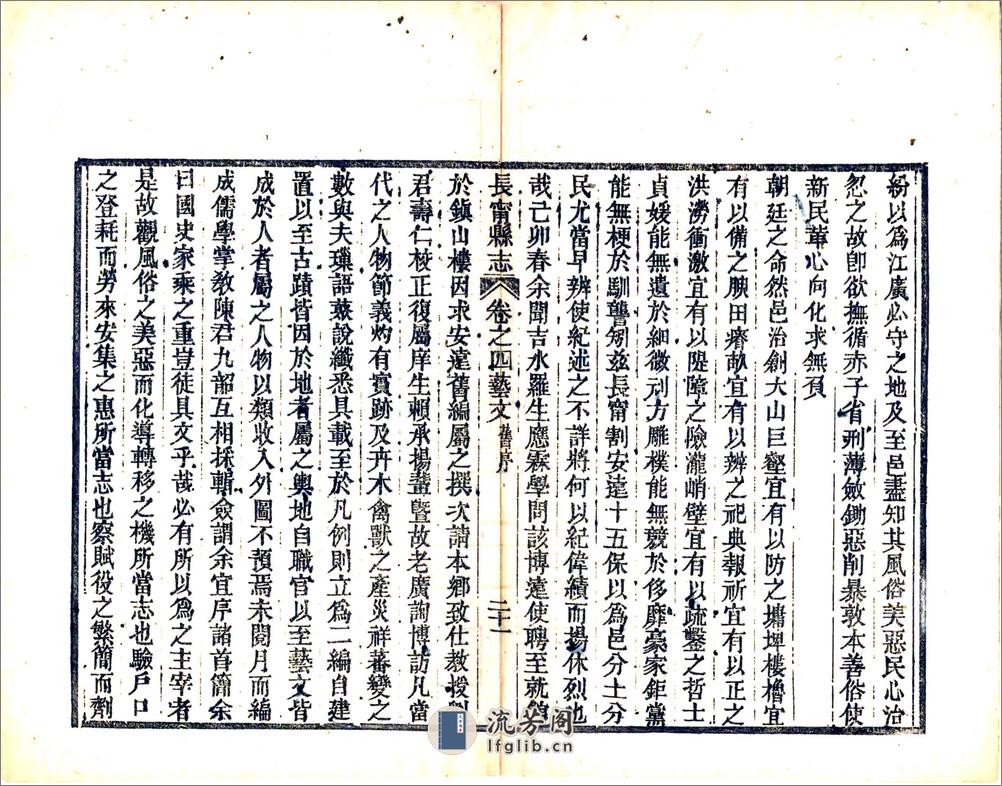 紛以爲江廣必守之地及至邑盡知其風俗美惡民心治
忽之故卽欲撫循赤子省刑薄斂鋤惡削暴敦本善俗使
新民革心向化求無負
朝廷之命然邑治創大山巨壑宜有以防之墉埤樓櫓宜
有以備之腴田瘠畝宜有以辨之祀典報祈宜有以正之
洪澇衝激宜有以隄障之險瀧峭壁宜有以疏鑿之哲士
貞媛能無遺於細微刓方雕樸能無競於侈靡豪家鉅黨
能無梗於馴讋矧茲長甯割安遠十五保以爲邑分土分
民尤當早辨使紀述之不詳將何以紀偉績而揚休烈也
哉己卯春余聞吉水羅生應霖學問該博遠使聘至就館
長甯縣志 卷之四藝文 舊序 二十一
於鎮山樓因求安遠舊編屬之撰次請本鄉致仕教授劉
君壽仁校正復屬庠生賴承揚輩暨故老廣詢博訪凡當
代之人物節義灼有實跡及卉木禽獸之產災祥蕃變之
數與夫璅語蓑說纖悉具載至於凡例則立爲二編自建
置以至古蹟皆因於地者屬之輿地自職官以至藝文皆
成於人者屬之人物以類收入外圖不預焉未閱月而編
成儒學掌教陳君九韶互相採輯僉謂余宜序諸首簡余
曰國史家乘之重豈徒具文乎哉必有所以爲之主宰者
是故觀風俗之美惡而化導轉移之機所當志也驗戶口
之登耗而勞來安集之惠所當志也察賦役之繁簡而劑
流芳阁
lfglib.cn